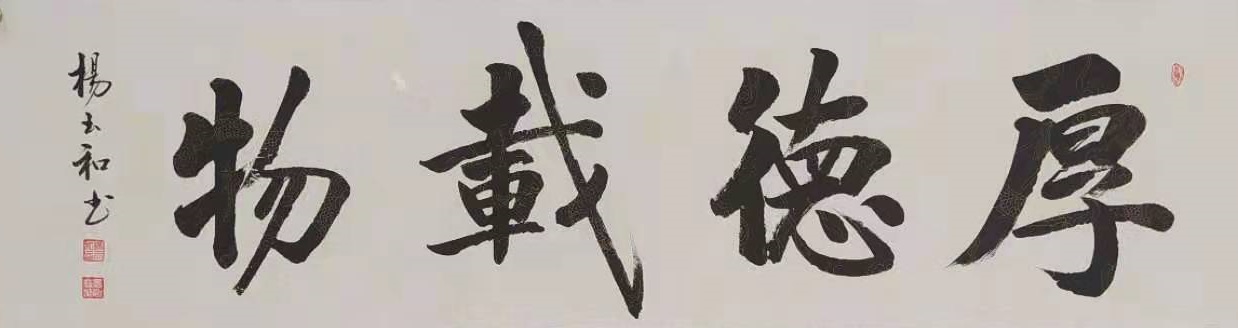 厚德載物
楊玉和书